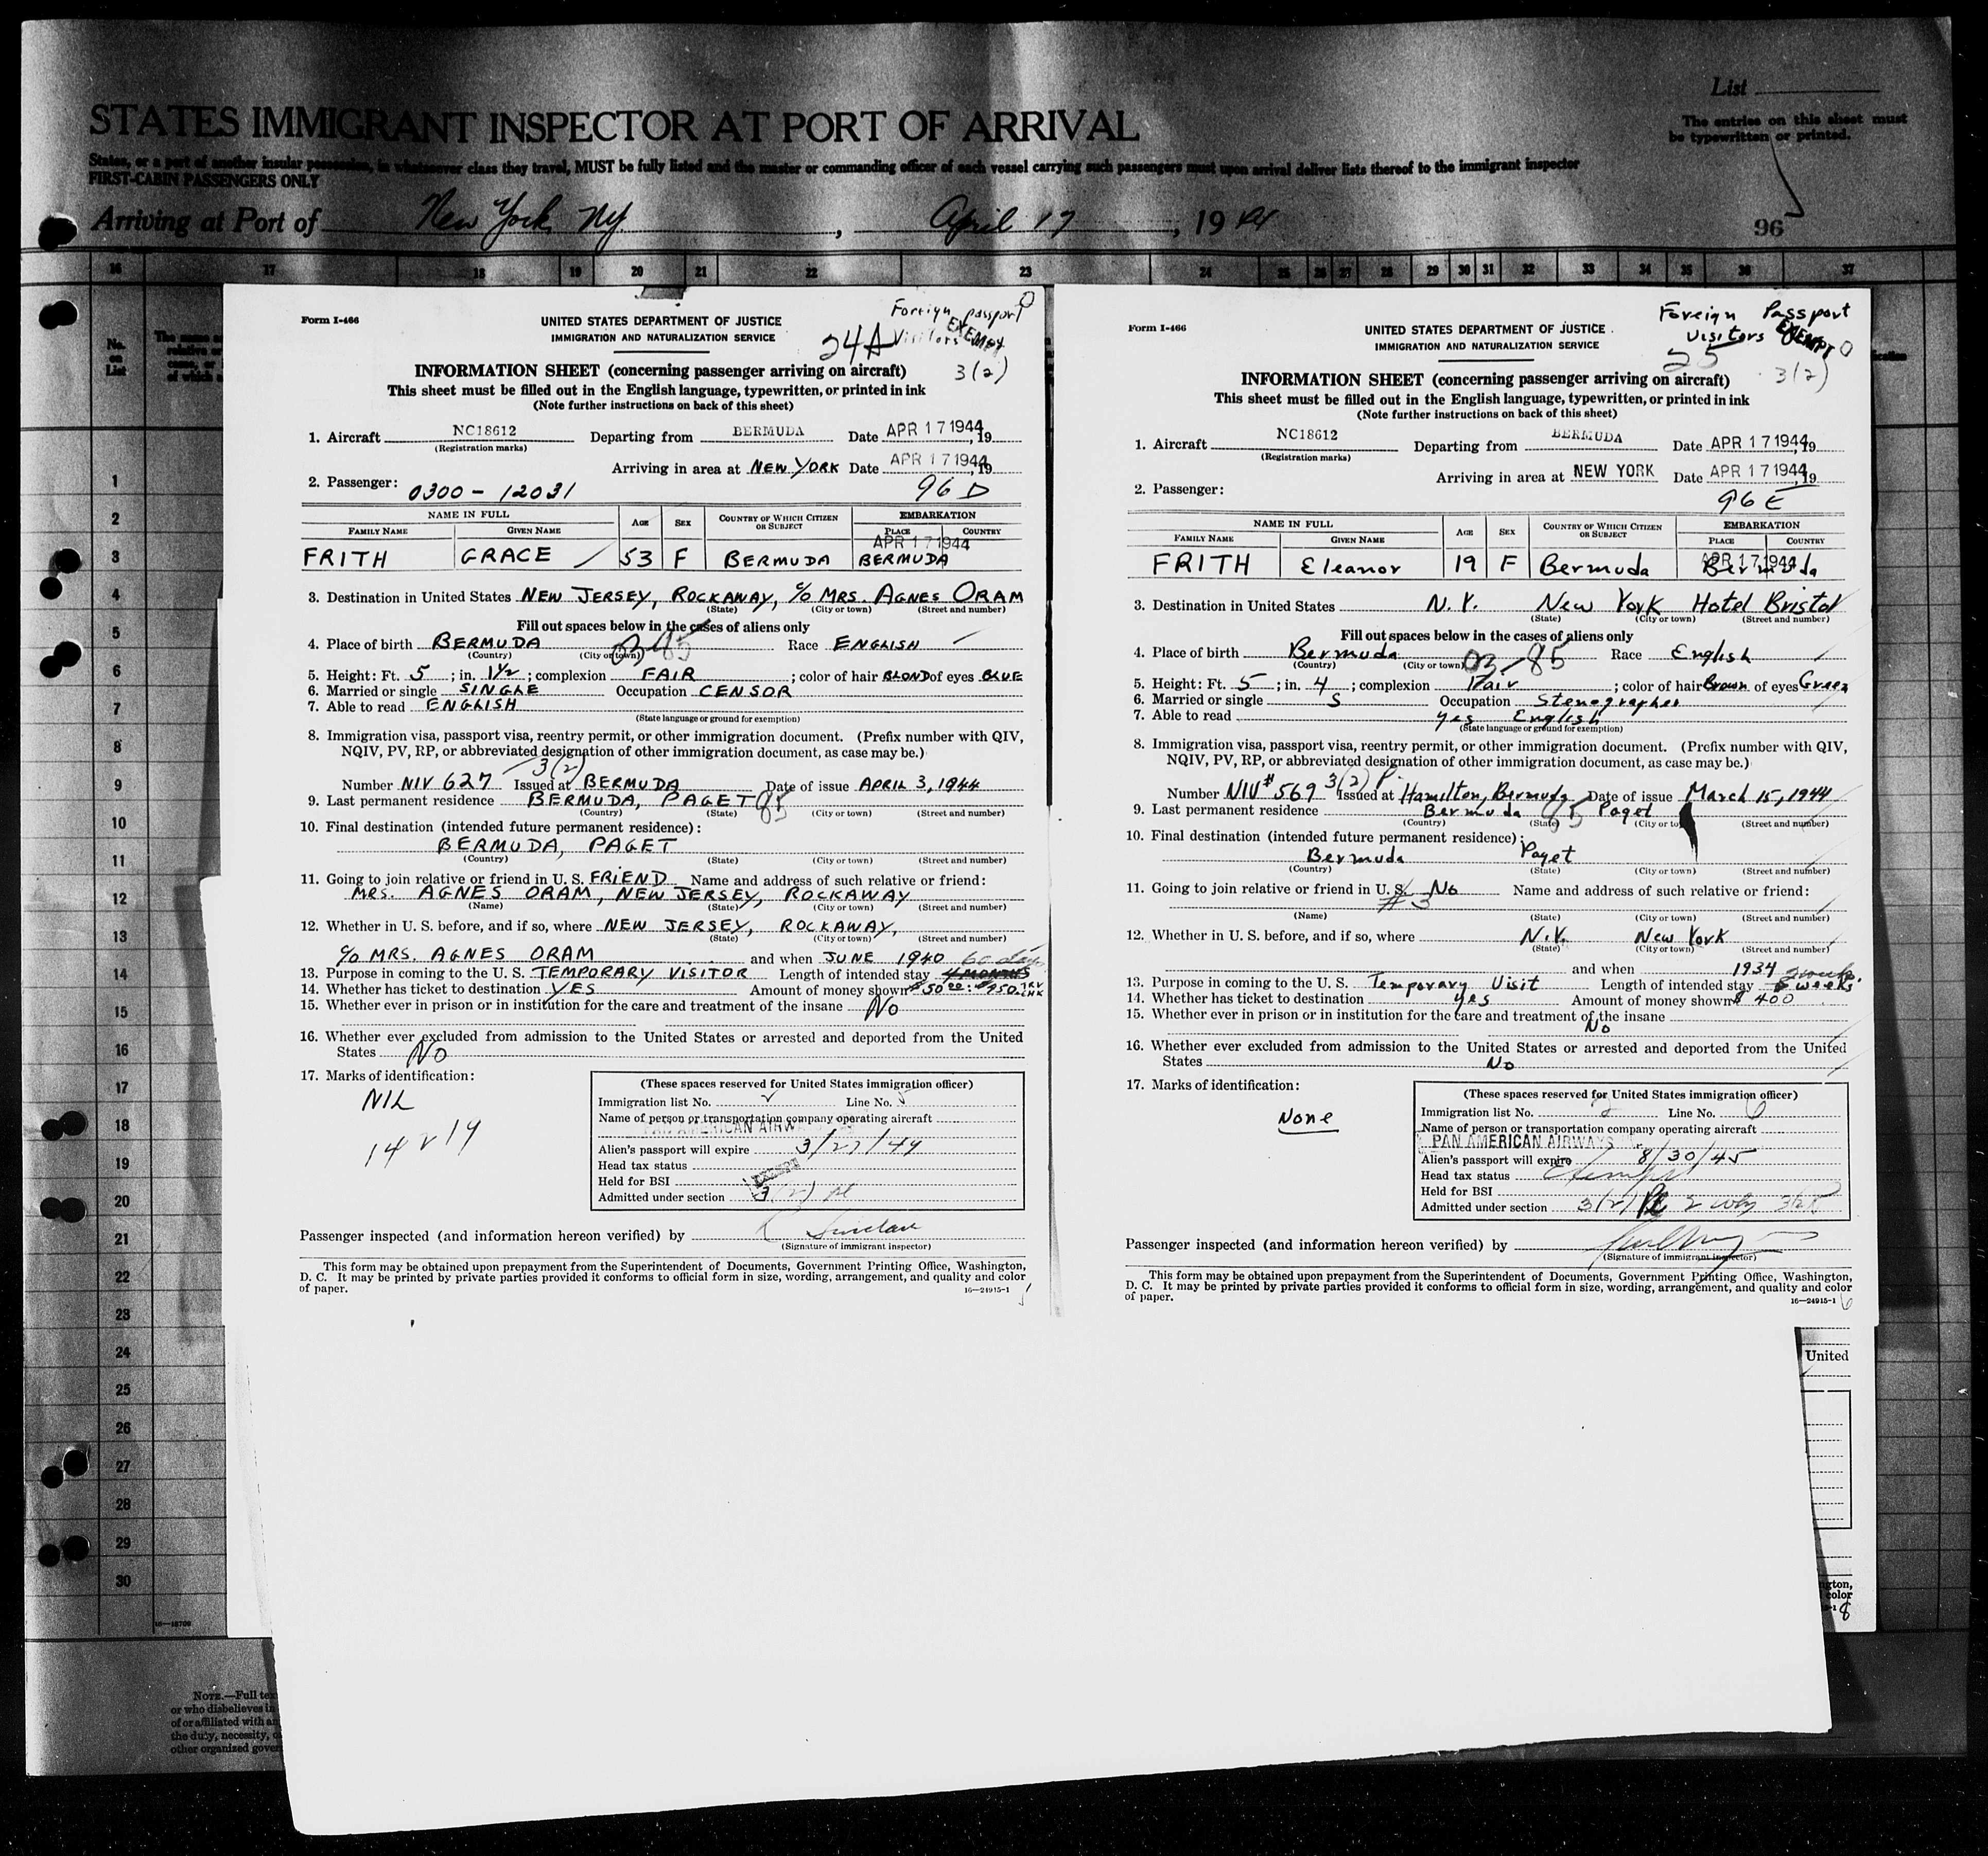 List
STATES IMMIGRANT INSPECTOR AT PORT OF ARRIVAL
The entries on this sheet must
be typewritten or printed.
States, or a port of another insular possession, in whatsoever class they travel, MUST be fully listed and the master or commanding officer of each vessel carrying such passengers must upon arrival deliver lists thereof to the immigrant inspector
FIRST-CABIN PASSENGERS ONLY
Arriving at Port of New York NY. , April 17 , 1944
96
16 17 18 19 20 21 22 23 24 25 26 27 28 29 30 31 32 33 34 35 36 37
No.
on
List
1
2
3
4
5
6
7
8
9
10
11
12
13
14
15
16
17
18
19
20
21
22
23
24
25
26
27
28
29
30
Form I-466
UNITED STATES DEPARTMENT OF JUSTICE
IMMIGRATION AND NATURALIZATION SERVICE
Foreign passport
Visitors EXEMPT
24A
3(2)
INFORMATION SHEET (concerning passenger arriving on aircraft)
This sheet must be filled out in the English language, typewritten, or printed in ink
(Note further instructions on back of this sheet)
1. Aircraft NC18612 Departing from BERMUDA Date APR 17 1944, 19
(Registration marks)
Arriving in area at NEW YORK Date APR 17 1944, 19
2. Passenger: 0300-12031 96 D
NAME IN FULL AGE SEX COUNTRY OF WHICH CITIZEN OR SUBJECT EMBARKATION
FAMILY NAME GIVEN NAME PLACE COUNTRY
APR 17 1944
FRITH GRACE 53 F BERMUDA BERMUDA
3. Destination in United States NEW JERSEY, ROCKAWAY, c/o MRS. AGNES ORAM
(State) (City or town) (Street and number)
Fill out spaces below in the cases of aliens only
4. Place of birth BERMUDA 85 Race ENGLISH
(Country) (City or town)
5. Height: Ft. 5 ; in. 1 1/2 ; complexion FAIR ; color of hair BLOND of eyes BLUE
6. Married or single SINGLE Occupation CENSOR
7. Able to read ENGLISH
(State language or ground for exemption)
8. Immigration visa, passport visa, reentry permit, or other immigration document. (Prefix number with QIV,
NQIV, PV, RP, or abbreviated designation of other immigration document, as case may be.)
3(2)
Number NIV 627 Issued at BERMUDA Date of issue APRIL 3, 1944
9. Last permanent residence BERMUDA, PAGET 85
(Country) (State) (City or town) (Street and number)
10. Final destination (intended future permanent residence):
BERMUDA, PAGET
(Country) (State) (City or town) (Street and number)
11. Going to join relative or friend in U. S. FRIEND Name and address of such relative or friend:
MRS. AGNES ORAM, NEW JERSEY, ROCKAWAY
(Name) (State) (City or town) (Street and number)
12. Whether in U. S. before, and if so, where NEW JERSEY, ROCKAWAY,
(State) (City or town) (Street and number)
c/o MRS. AGNES ORAM and when JUNE 1940 60 days
13. Purpose in coming to the U. S. TEMPORARY VISITOR Length of intended stay 4 MONTHS
14. Whether has ticket to destination YES Amount of money shown $50 00: $950 TRV CHK
15. Whether ever in prison or in institution for the care and treatment of the insane NO
16. Whether ever excluded from admission to the United States or arrested and deported from the United
States NO
17. Marks of identification:
NIL
14 2 14
(These spaces reserved for United States immigration officer)
Immigration list No. 2 Line No. 5
Name of person or transportation company operating aircraft
PAN AMERICAN AIRWAYS
Alien's passport will expire 3/27/44
Head tax status
Held for BSI
EXEMPT
Admitted under section 3(2)
Passenger inspected (and information hereon verified) by Sinclair
(Signature of immigrant inspector)
This form may be obtained upon prepayment from the Superintendent of Documents, Government Printing Office, Washington,
D. C. It may be printed by private parties provided it conforms to official form in size, wording, arrangement, and quality and color
of paper.
16—24915-1
Form I-466
UNITED STATES DEPARTMENT OF JUSTICE
IMMIGRATION AND NATURALIZATION SERVICE
Foreign Passport
Visitors EXEMPT
25
3(2)
INFORMATION SHEET (concerning passenger arriving on aircraft)
This sheet must be filled out in the English language, typewritten, or printed in ink
(Note further instructions on back of this sheet)
1. Aircraft NC18612 Departing from BERMUDA Date APR 17 1944, 19
(Registration marks)
Arriving in area at NEW YORK Date APR 17 1944, 19
2. Passenger: 96 E
NAME IN FULL AGE SEX COUNTRY OF WHICH CITIZEN OR SUBJECT EMBARKATION
FAMILY NAME GIVEN NAME PLACE COUNTRY
APR 17 1944
FRITH Eleanor 19 F Bermuda Bermuda
3. Destination in United States N.Y. New York Hotel Bristol
(State) (City or town) (Street and number)
Fill out spaces below in the cases of aliens only
4. Place of birth Bermuda 03-85 Race English
(Country) (City or town)
5. Height: Ft. 5 ; in. 4 ; complexion Fair ; color of hair Brown of eyes Green
6. Married or single S Occupation Stenographer
7. Able to read yes English
(State language or ground for exemption)
8. Immigration visa, passport visa, reentry permit, or other immigration document. (Prefix number with QIV,
NQIV, PV, RP, or abbreviated designation of other immigration document, as case may be.)
3(2) P.
Number NIV #569 Issued at Hamilton, Bermuda Date of issue March 15, 1944
9. Last permanent residence Bermuda 85 Paget
(Country) (State) (City or town) (Street and number)
10. Final destination (intended future permanent residence):
Bermuda Paget
(Country) (State) (City or town) (Street and number)
11. Going to join relative or friend in U. S. No Name and address of such relative or friend:
#3
(Name) (State) (City or town) (Street and number)
12. Whether in U. S. before, and if so, where N.Y. New York
(State) (City or town) (Street and number)
and when 1934 2 weeks
13. Purpose in coming to the U. S. Temporary Visit Length of intended stay 8 weeks
14. Whether has ticket to destination yes Amount of money shown $400
15. Whether ever in prison or in institution for the care and treatment of the insane
No
16. Whether ever excluded from admission to the United States or arrested and deported from the United
States No
17. Marks of identification:
None
(These spaces reserved for United States immigration officer)
Immigration list No. 2 Line No. 6
Name of person or transportation company operating aircraft
PAN AMERICAN AIRWAYS
Alien's passport will expire 8/30/45
Head tax status Exempt
Held for BSI
Admitted under section 3(2) 2 wks
Passenger inspected (and information hereon verified) by
(Signature of immigrant inspector)
This form may be obtained upon prepayment from the Superintendent of Documents, Government Printing Office, Washington,
D. C. It may be printed by private parties provided it conforms to official form in size, wording, arrangement, and quality and color
of paper.
16—24915-1 6
United
color
8
NOTE.—Full tex
or who disbelieves in
of or affiliated with an
the duty, necessity, o
other organized gover